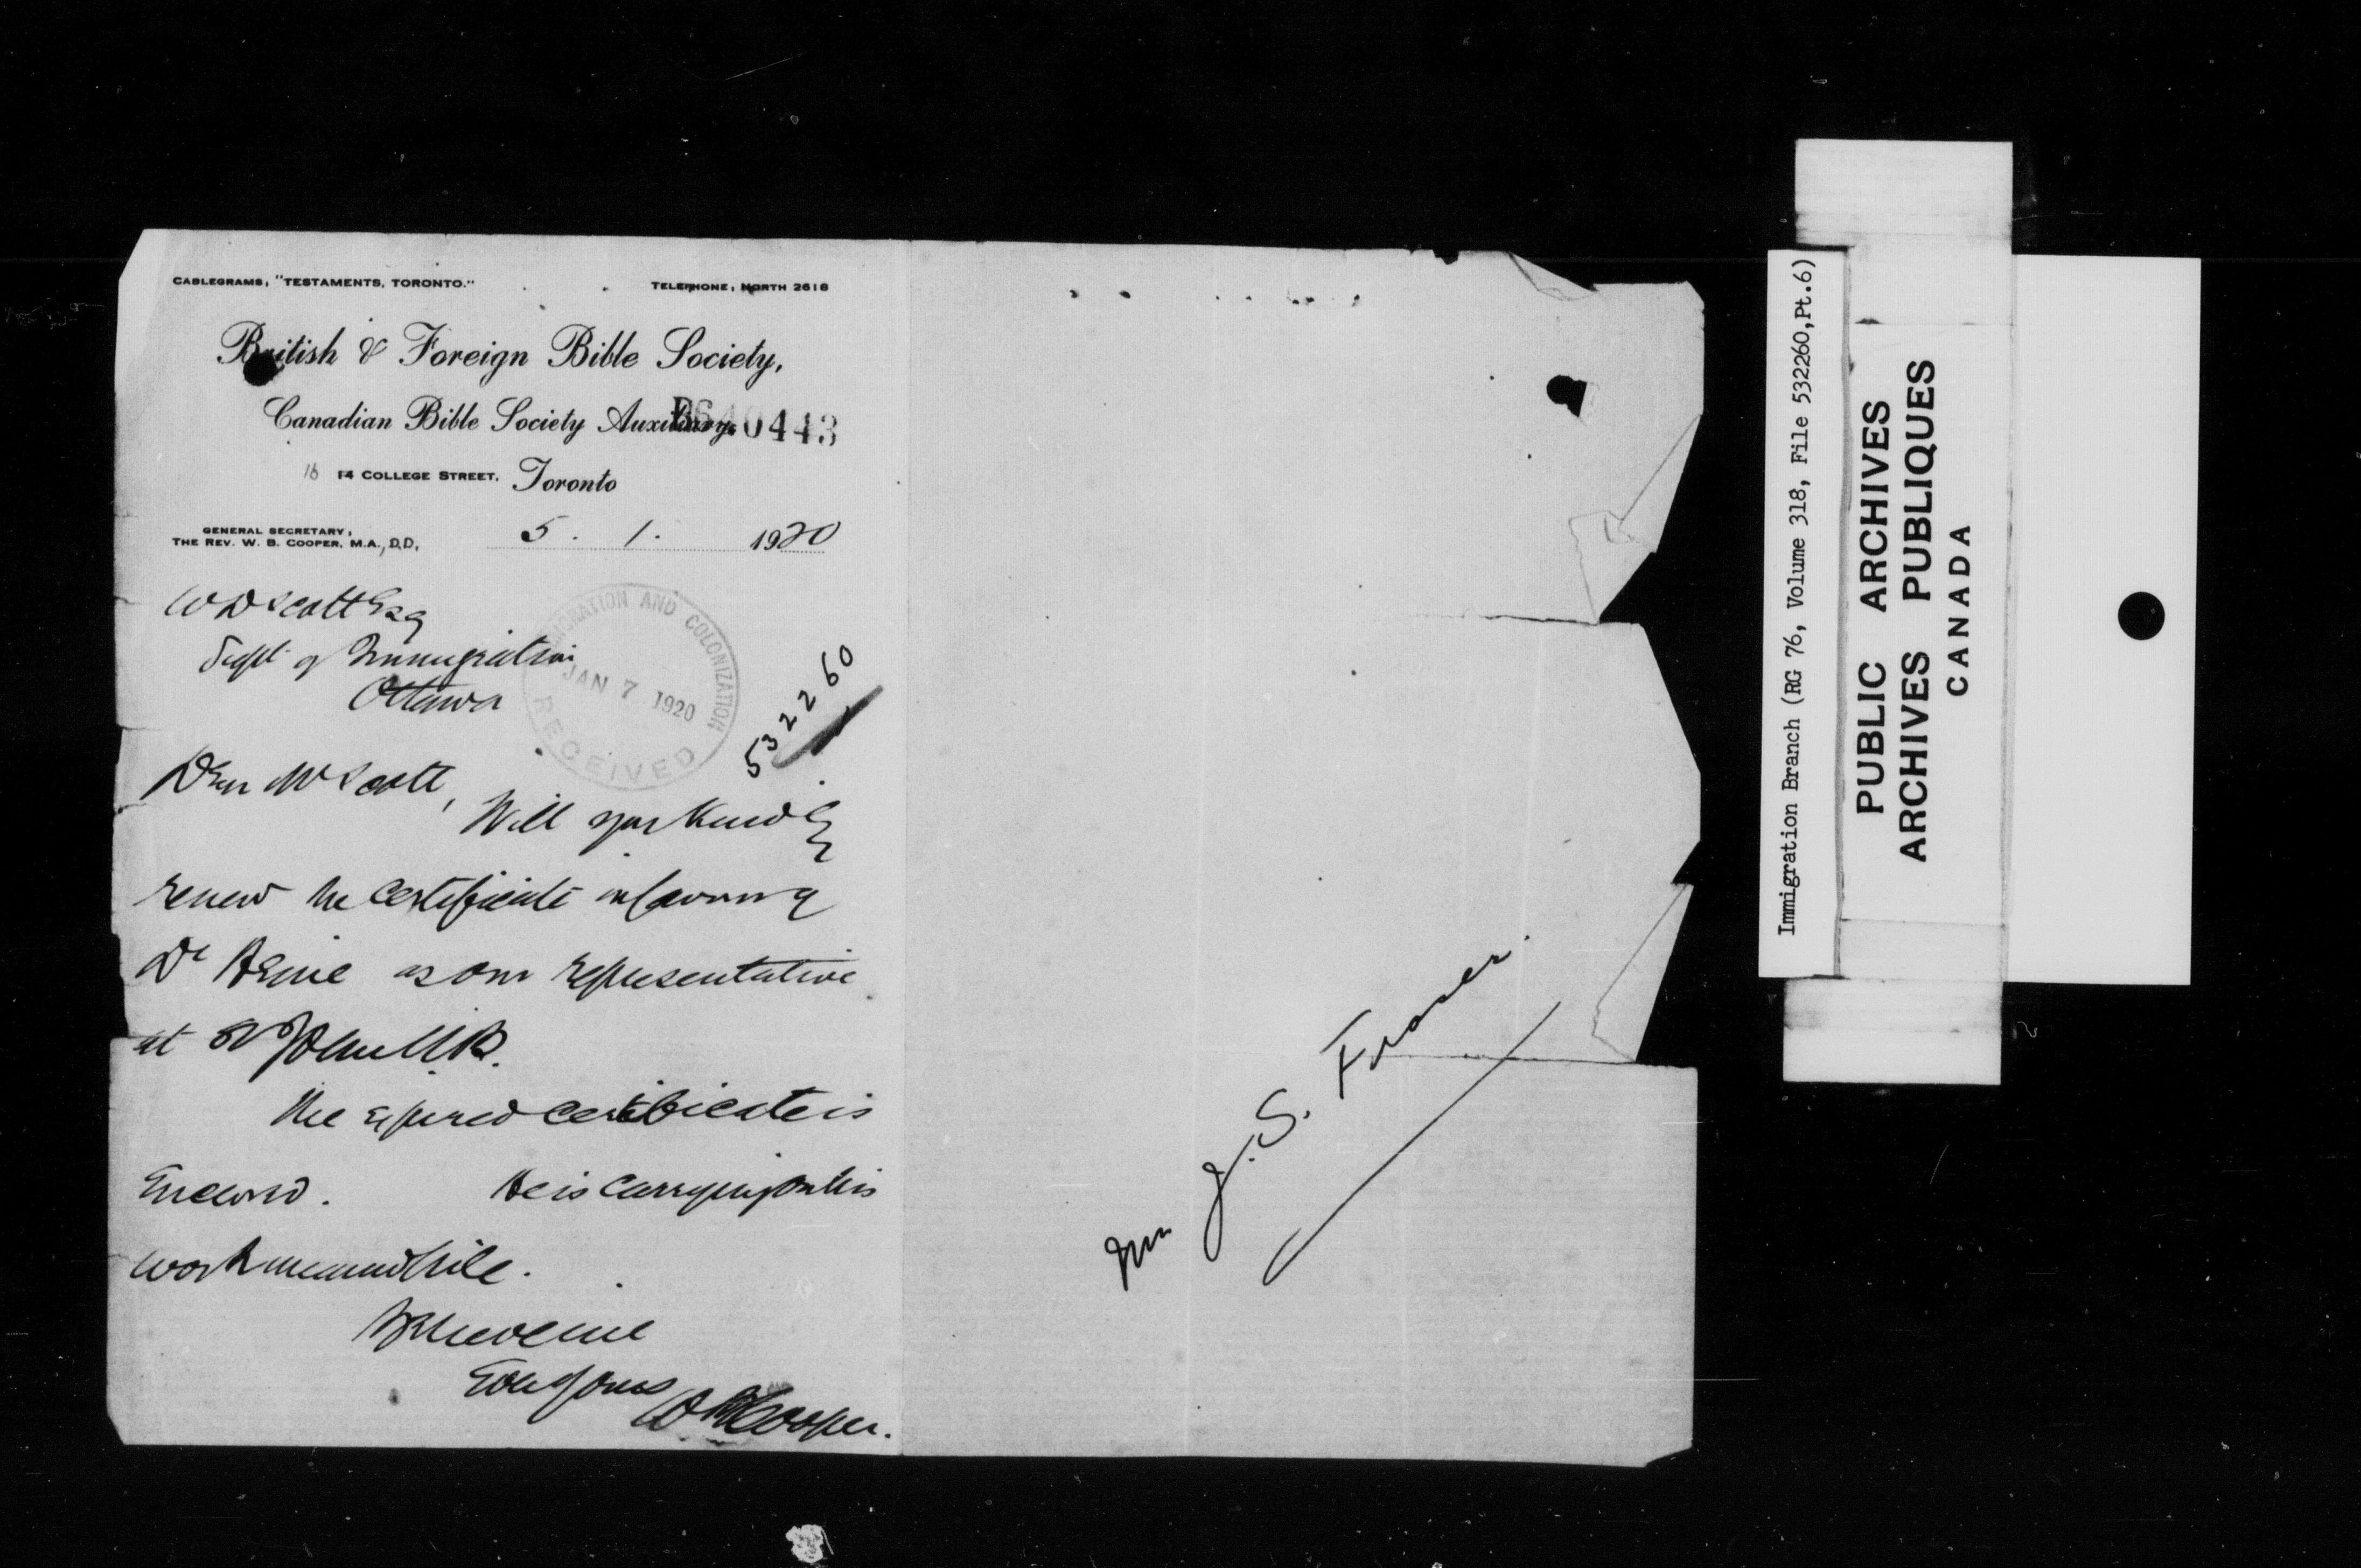 CABLEGRAMS, "TESTAMENTS, TORONTO."
TELEPHONE, NORTH 2618
British & Foreign Bible Society,
Canadian Bible Society Auxiliary.
0443
16 14 COLLEGE STREET, Toronto
GENERAL SECRETARY,
THE REV. W. B. COOPER, M.A., D.D.,
5 . 1 . 1920
W D Scott Esq
Supt of Immigration
Ottawa
IMMIGRATION AND COLONIZATION
JAN 7 1920
RECEIVED
532260
Dear Mr Scott,
Will you kindly
renew the certificate in favour of
Dr Heine as our representative
at St John N.B.
The expired certificate is
Enclosed. He is carrying on his
work meanwhile.
Believe me
Ever yours
W B Cooper.
Mr J. S. Fraser.
Immigration Branch (RG 76, Volume 318, File 532260,Pt.6)
PUBLIC ARCHIVES
ARCHIVES PUBLIQUES
CANADA